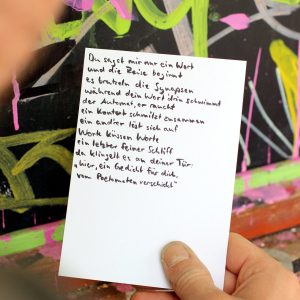 Du sagst mir nur ein Wort
und die Reise beginnt
es brutzeln die Synapsen
während dein Wort drin schwimmt
der Automat, er raucht
ein Kontext schmilzt zusammen
ein andrer löst sich auf
Worte küssen Worte
ein letzter feiner Schliff
da klingelt es an deiner Tür:
"hier, ein Gedicht für dich,
vom Poetomaten verschickt"